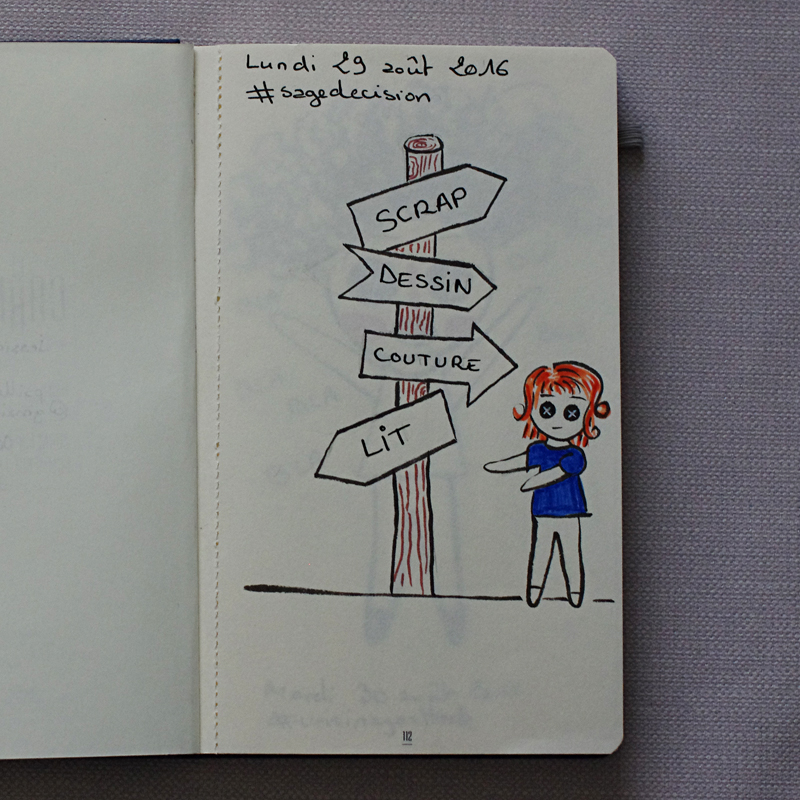 Lundi 29 août 2016
#sagedecision
SCRAP
DESSiN
COUTURE
LiT
112